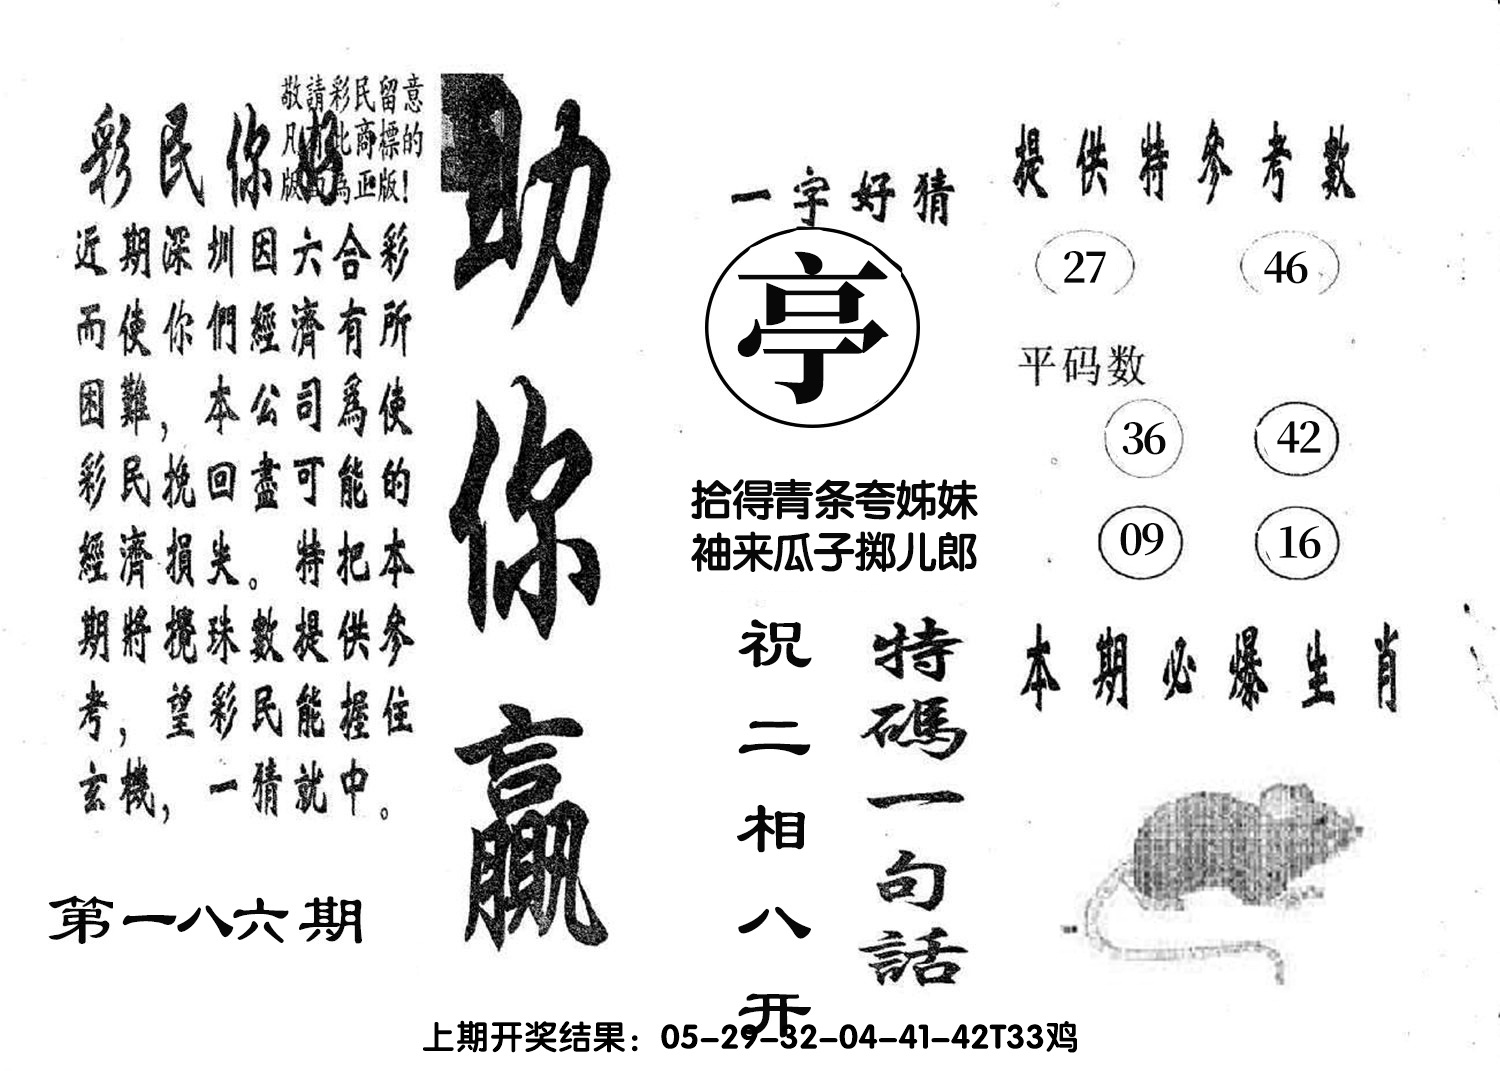 敬請彩民留意
凡有此商標的
版面為正版!
彩民你好
近期深圳因六合彩
而使你們經濟有所
困難,本公司爲使
彩民挽回盡可能的
經濟損失。特把本
期將攪珠數提供參
考,望彩民能握住
玄機,一猜就中。
第一八六期
助你贏
一字好猜
亭
拾得青条夸姊妹
袖来瓜子掷儿郎
特碼一句話
祝二相八开
提供特參考數
27 46
平码数
36 42
09 16
本期必爆生肖
上期开奖结果：05-29-32-04-41-42T33鸡